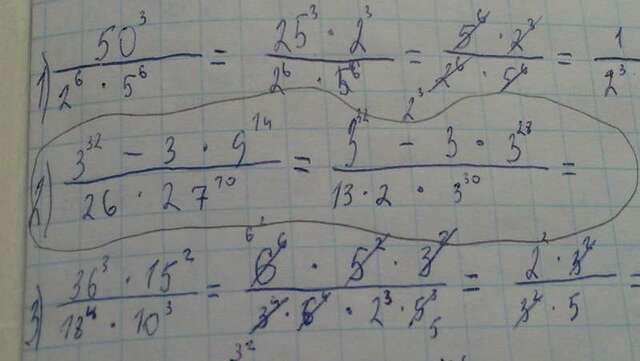 1) 50³ / 2⁶ · 5⁶ = 25³ · 2³ / 2⁶ · 5⁶ = 5⁶ · 2³ / 2⁶ · 5⁶ = 1 / 2³
2³
2) 3³² − 3 · 9¹⁴ / 26 · 27¹⁰ = 3³² − 3 · 3²⁸ / 13 · 2 · 3³⁰ =
6²
3) 36³ · 15² / 18⁴ · 10³ = 6⁶ · 5² · 3² / 3⁴ · 6⁴ · 2³ · 5³ = 2² · 3² / 3⁴ · 5 =
5
3²